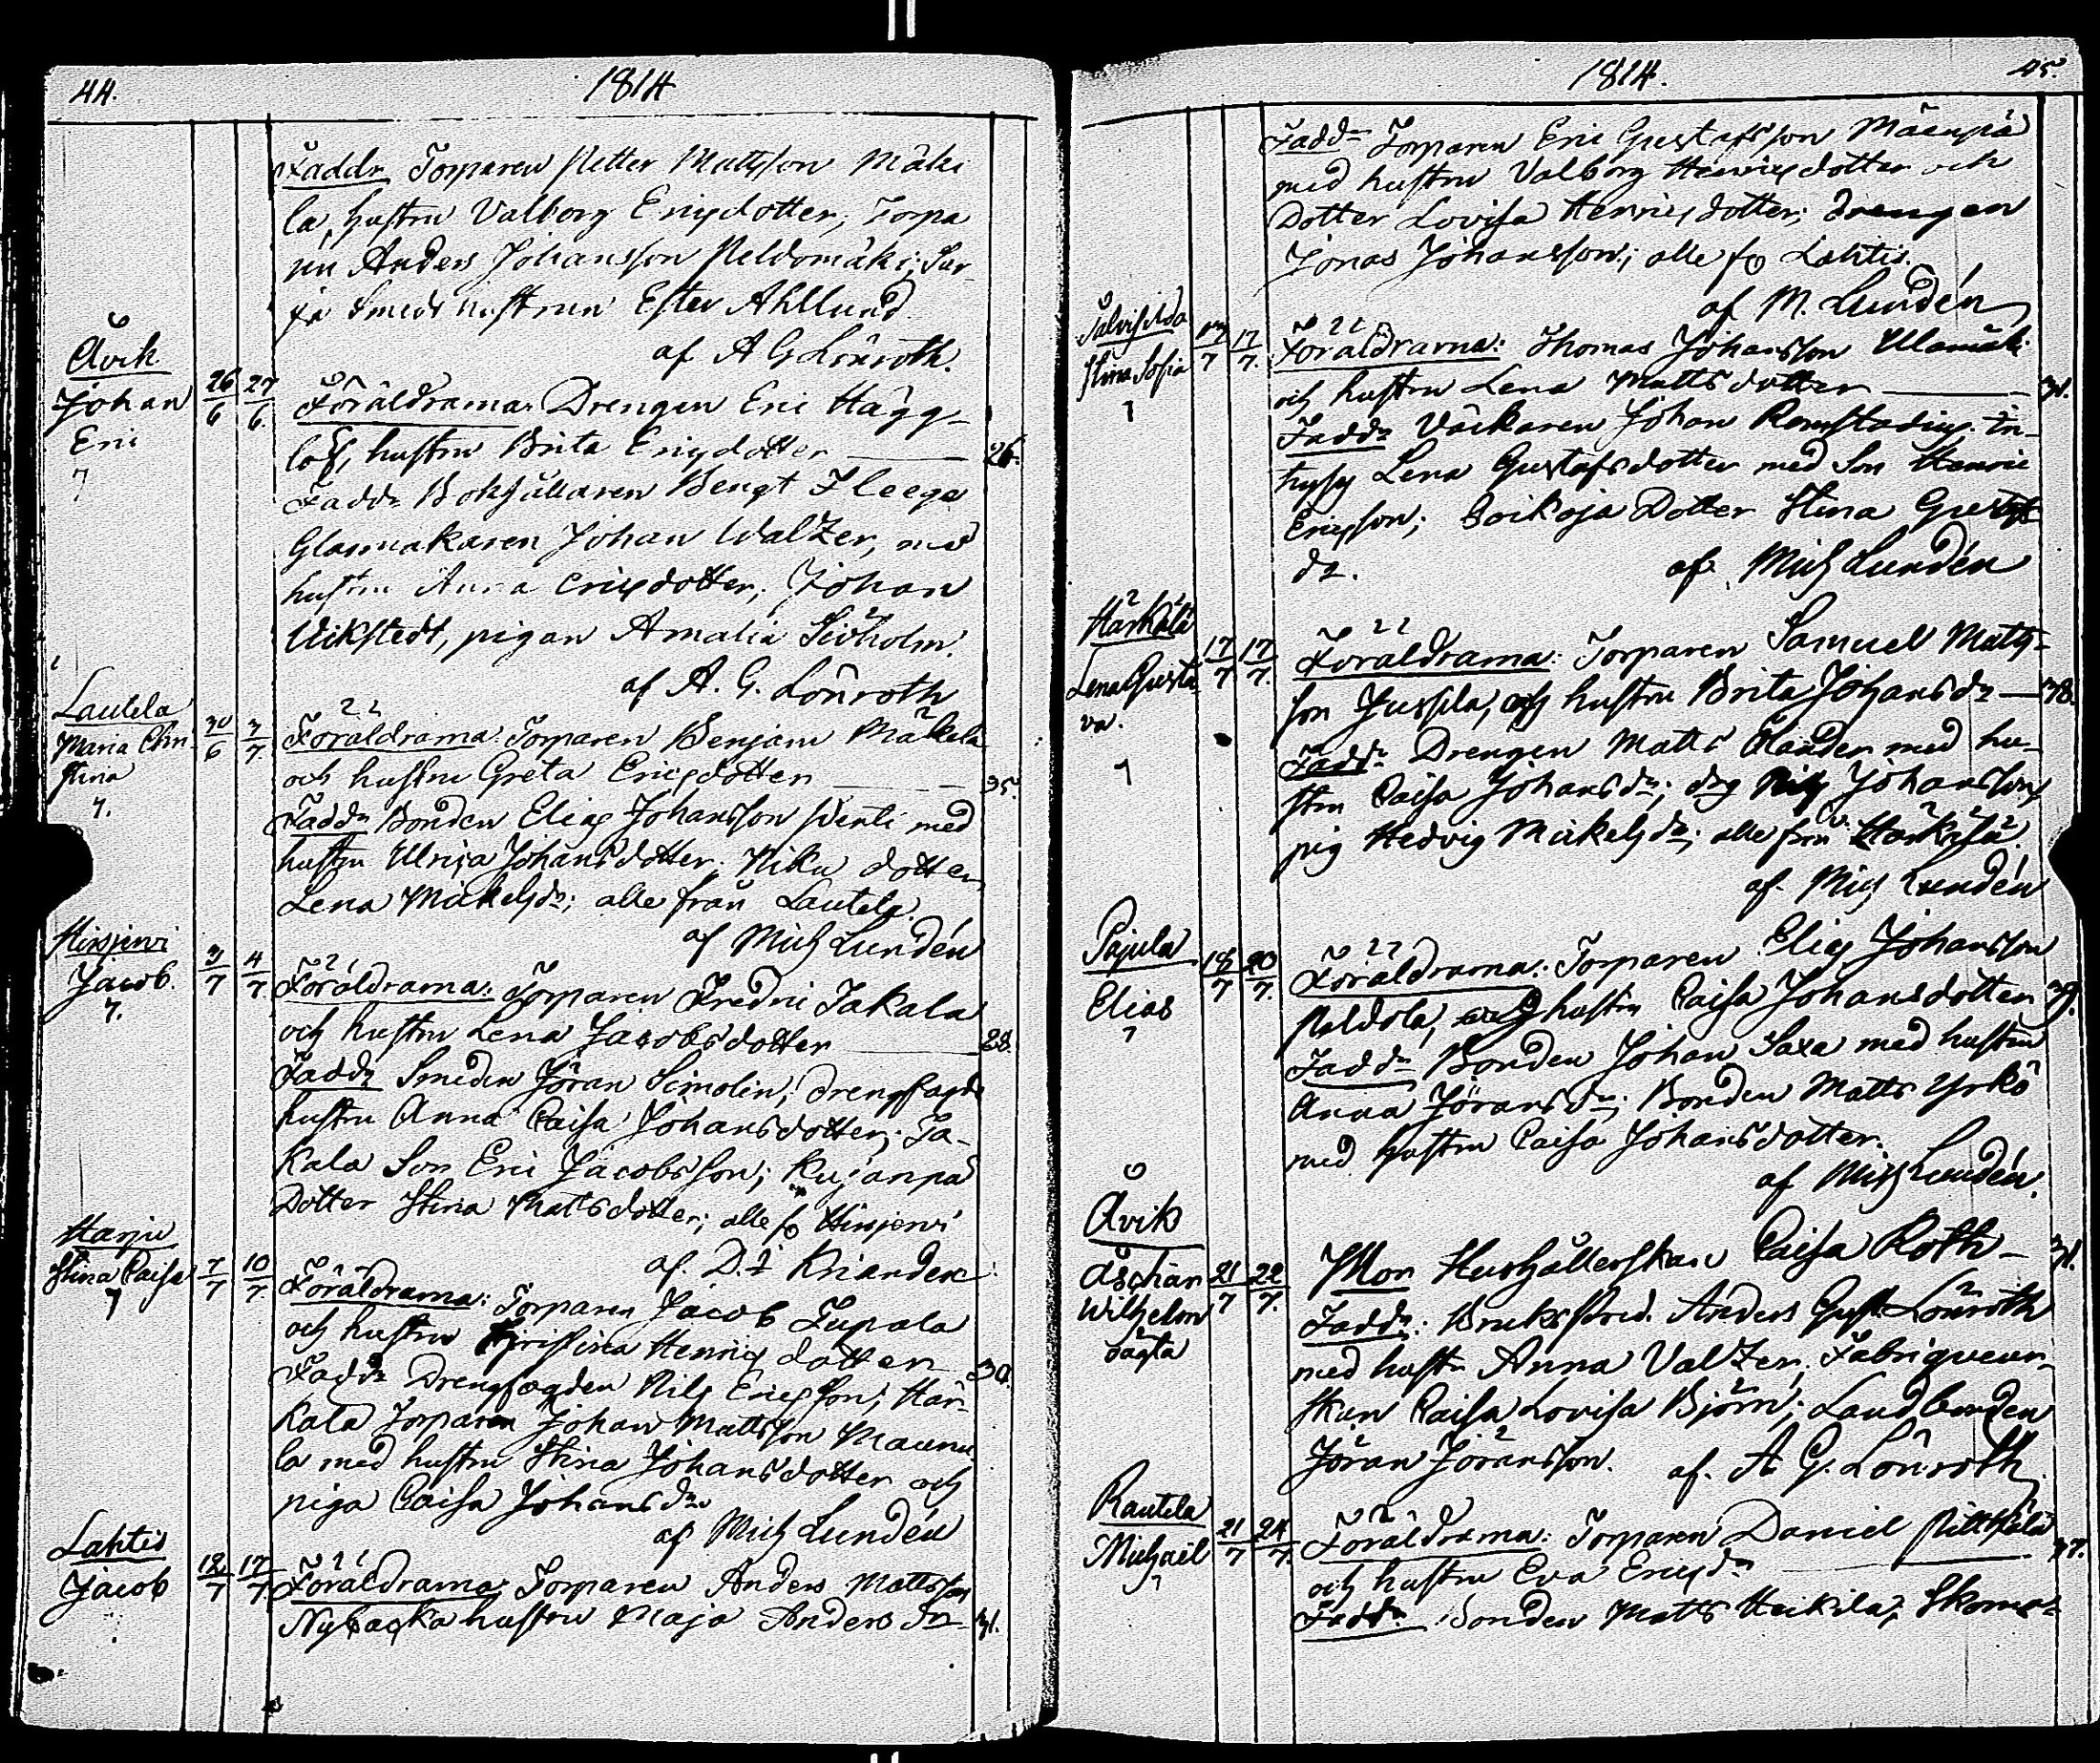 44.
1814
Faddr Torparen Petter Mattsson Mäki
la, hustru Valborg Ericsdotter, Torpa
ren Anders Johansson Peldomäki; Sur
je Smeds hustrun Ester Ahllund
af A G Lönroth.
Åvik
Johan
Eric
7
26/6 27/6
Föräldrarna: Drengen Eric Hägg-
lof, hustru Brita Ericsdotter 26.
Faddr Bokhållaren Bengt Fleege
Glasmakaren Johan Walzer, med
hustru Anna Ericsdotter; Johan
Vikstedt, pigan Amalia Siöholm.
af A. G. Lönroth
Lautela
Maria Chri
stina
7.
30/6 3/7
Föräldrarna: Torparen Benjam Mäkelä
och hustru Greta Ericsdotter 35.
Faddr Bonden Elias Johansson Penti med
hustru Ulrica Johansdotter; Niku dotter
Lena Mickelsdr; alle från Lautela.
af Mich Lundén
Hirsjervi
Jacob.
7.
3/7 4/7
Föräldrarna: Torparen Fredric Takala
och hustru Lena Jacobsdotter 28.
Faddr Smeden Jöran Simolin, Drengfogde
hustru Anna Caisa Johansdotter; Ta-
kala Son Eric Jacobsson; Kujanpä
Dotter Stina Mattsdotter; alle fr Hirsjervi
af D. F Kriander
Harju
Stina Caisa
7
7/7 10/7
Föräldrarna: Torparen Jacob Tupala
och hustru Christina Henricsdotter 30.
Faddr Drengfogden Nils Ericsson; Här-
kälä Torparen Johan Mattsson Maunu
la med hustru Stina Johansdotter och
piga Caisa Johansdr
af Mich Lundén
Lahtis
Jacob
12/7 17/7
Föräldrarna: Torparen Anders Mattsson
Nybacka hustru Maja Anders dr 31.
1814.
45.
Faddr Torparen Eric Gustafsson Mäenpä
med hustru Valborg Henricsdotter och
Dotter Lovisa Henricsdotter; drengen
Jonas Johansson; alle fr Lahtis.
af M. Lundén
Stina Sofia
7
17/7
Föräldrarna: Thomas Johansson Ulamäki
och hustru Lena Mattsdotter 31.
Faddr Väckaren Johan Romstadius In-
hyses Lena Gustafsdotter med Son Henric
Ericsson; Soikoja Dotter Stina Gustafs
dr. af Mich Lundén
Härkälä
Lena Gusta
va.
7
17/7 17/7
Föräldrarna: Torparen Samuel Matts-
son Jussila, och hustru Brita Johansdr 38.
Faddr Drengen Matts Elander med hu-
stru Caisa Johansdr; drg Nils Johansson,
pig Hedvig Mickelsdr; alle från Härkälä.
af Mich Lundén
Pajula
Elias
7
18/7 20/7
Föräldrarna: Torparen Elias Johansson
Peldola, och hustru Caisa Johansdotter 39.
Faddr Bonden Johan Saxa med hustru
Anna Jöransdr; Bonden Matts Yrkö
med hustru Caisa Johansdotter.
af Mich Lundén.
Åvik
Wilhelm
oägta
21/7 22/7
Mor Hushållerskan Caisa Roth 31.
Faddr: Bruks Pred. Anders Gust Lönroth
med hustr Anna Valzer, Fabriqueur-
skan Caisa Lovisa Björn; Landbonden
Jöran Jöransson. af. A G. Lönroth
Rautela
Michael
7
21/7 24/7
Föräldrarna: Torparen Daniel
och hustru Eva Ericsdr 37.
Faddr Bonden Matts Heikilä, Skoma-